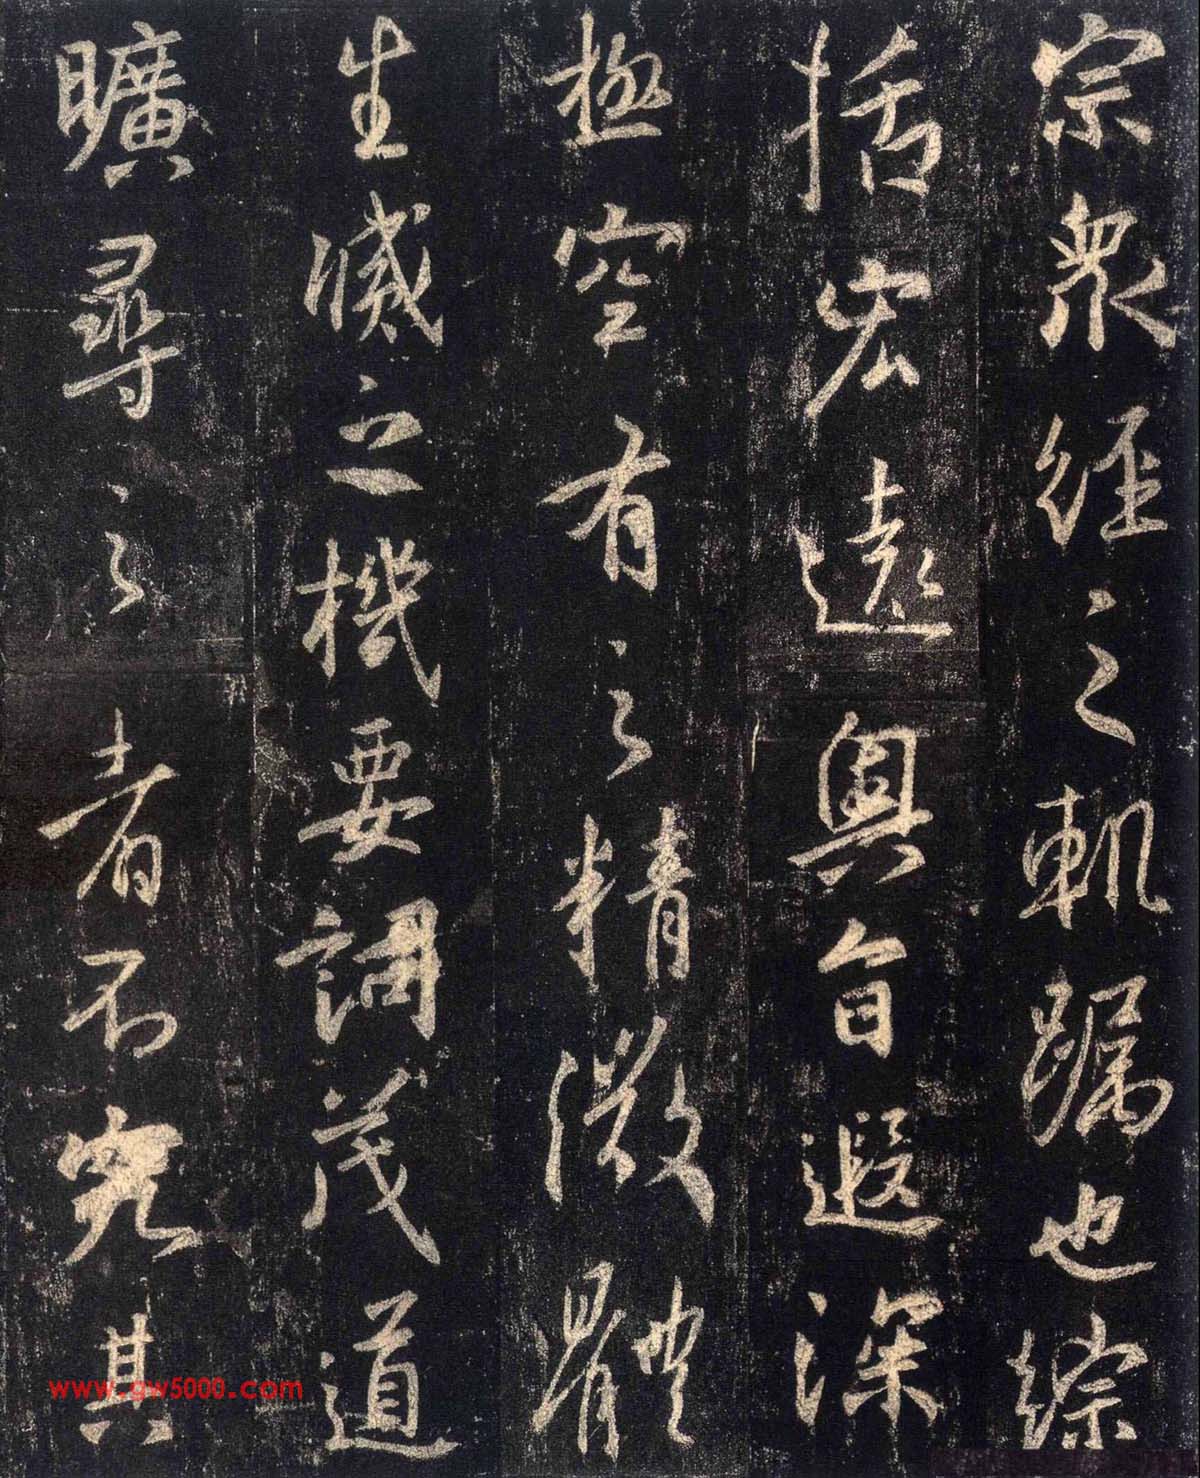 宗衆經之軌躅也綜
括宏遠奧旨遐深
極空有之精微體
生滅之機要詞茂道
曠尋之者不究其
www.gw5000.com